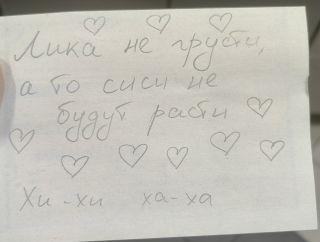 Лика не грусти,
а то сиси не
будут расти
Хи-хи ха-ха